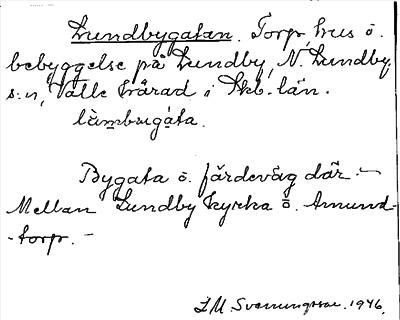 Lundbygatan. Torp hus o.
bebyggelse på Lundby, N. Lundby
s:n, Valle härad i Skb. län.
làmbugáta.
Bygata o. färdeväg där. -
Mellan Lundby kyrka o. Amund-
-torp. -
J M. Svenungsson. 1946.